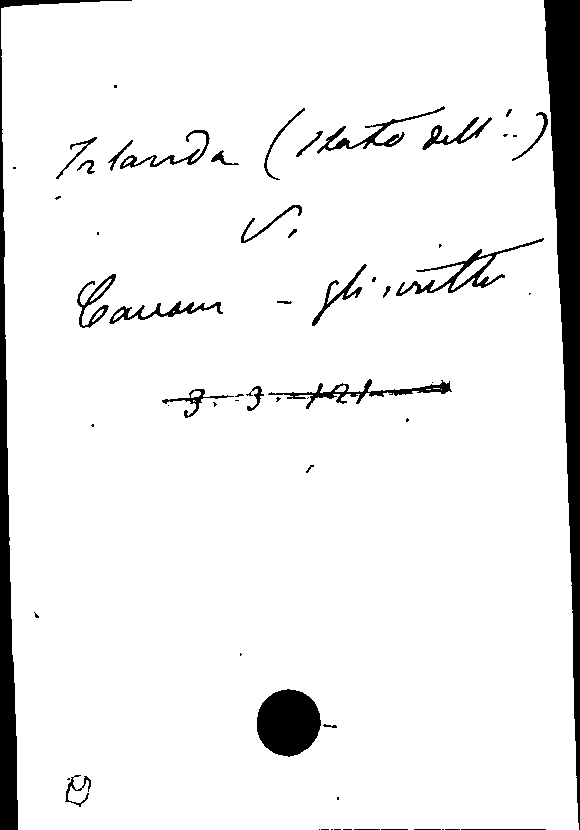 Irlanda (Stato dell'..)
V.
Cavour - gli scritti
3. 3. 121